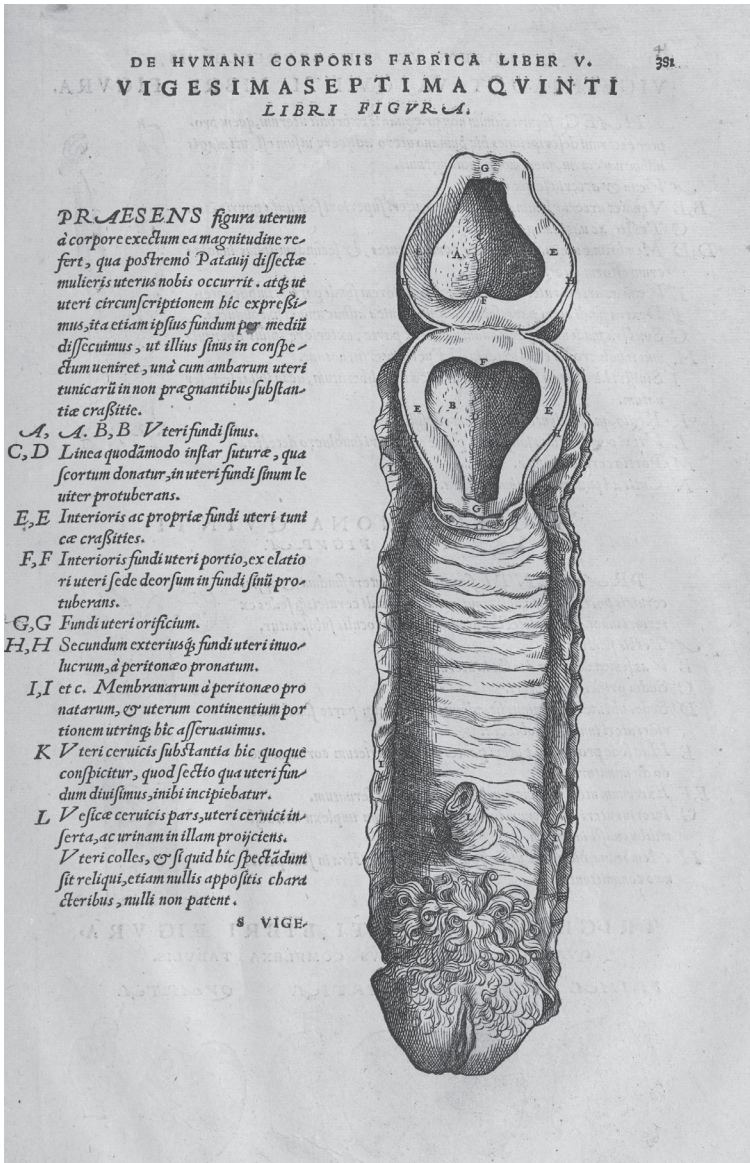 DE HVMANI CORPORIS FABRICA LIBER V. 391
VIGESIMASEPTIMA QVINTI
LIBRI FIGVRA.
PRAESENS figura uterum
à corpore exectum ea magnitudine re-
fert, qua postremò Patauij dissectæ
mulieris uterus nobis occurrit. atq; ut
uteri circunscriptionem hic expreßi-
mus, ita etiam ipsius fundum per mediũ
dissecuimus, ut illius sinus in conspe-
ctum ueniret, unà cum ambarum uteri
tunicarũ in non prægnantibus substan-
tiæ craßitie.
A, A. B, B Vteri fundi sinus.
C, D Linea quodãmodo instar suturæ, qua
scortum donatur, in uteri fundi sinum le
uiter protuberans.
E, E Interioris ac propriæ fundi uteri tuni
cæ craßities.
F, F Interioris fundi uteri portio, ex elatio
ri uteri sede deorsum in fundi sinũ pro-
tuberans.
G, G Fundi uteri orificium.
H, H Secundum exteriusq; fundi uteri inuo-
lucrum, à peritonæo pronatum.
I, I et c. Membranarum à peritonæo pro
natarum, & uterum continentium por
tionem utrinq; hic asseruauimus.
K Vteri ceruicis substantia hic quoque
conspicitur, quod sectio qua uteri fun-
dum diuisimus, inibi incipiebatur.
L Vesicæ ceruicis pars, uteri ceruici in-
serta, ac urinam in illam proijciens.
Vteri colles, & si quid hic spectãdum
sit reliqui, etiam nullis appositis chara
cteribus, nulli non patent.
S VIGE-
G
A
E
H
F
F
E
B
E
H
G
K
K
I
L